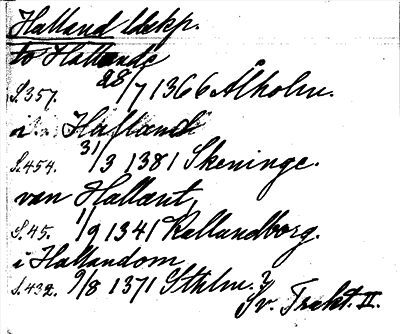 Halland ldskp.
to Hallande
S.357. 28/7 1366 Ålholm.
i Halland
S.454. 31/3 1381 Skeninge.
van Hallant,
S.45. 1/9 1341 Kallandborg.
i Hallandom
S.432. 9/8 1371 Sthlm.
Sv. Trakt. II.